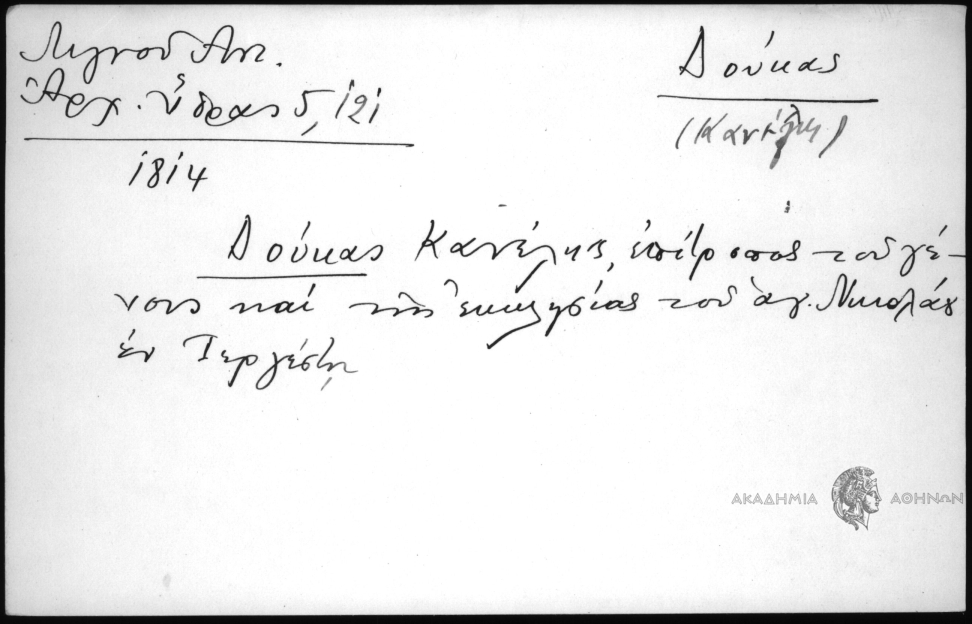 Λιγνοῦ Ἀντ.
Ἀρχ. Ὕδρας 5, 121
1814
Δούκας
(Κανέλης)
Δούκας Κανέλης, ἐπίτροπος τοῦ γέ-
νους καί τῆς ἐκκλησίας τοῦ ἁγ. Νικολάου
ἐν Τεργέστῃ
ΑΚΑΔΗΜΙΑ ΑΘΗΝΩΝ